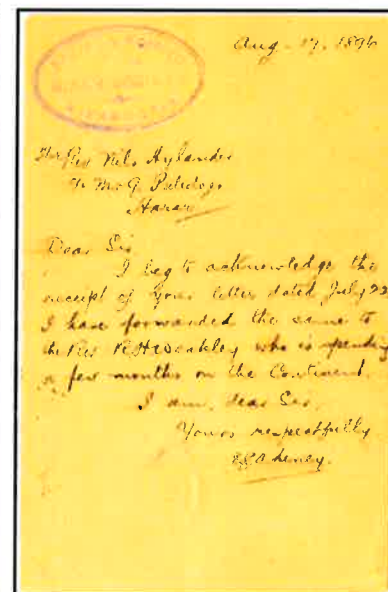 Aug. 17. 1896
The Rev Nils Hylander
Harar
Dear Sir
I beg to acknowledge the
receipt of your letter dated July 22
I have forwarded the same to
the Rev R H Weakley who is spending
a few months on the Continent.
I am, dear Sir,
Yours respectfully